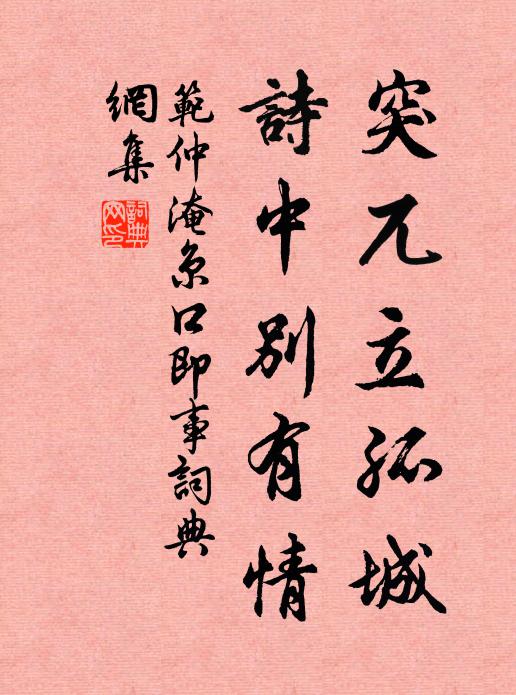 突兀立孤城
詩中別有情
範仲淹京口即事詞典
網集
詞典
網印